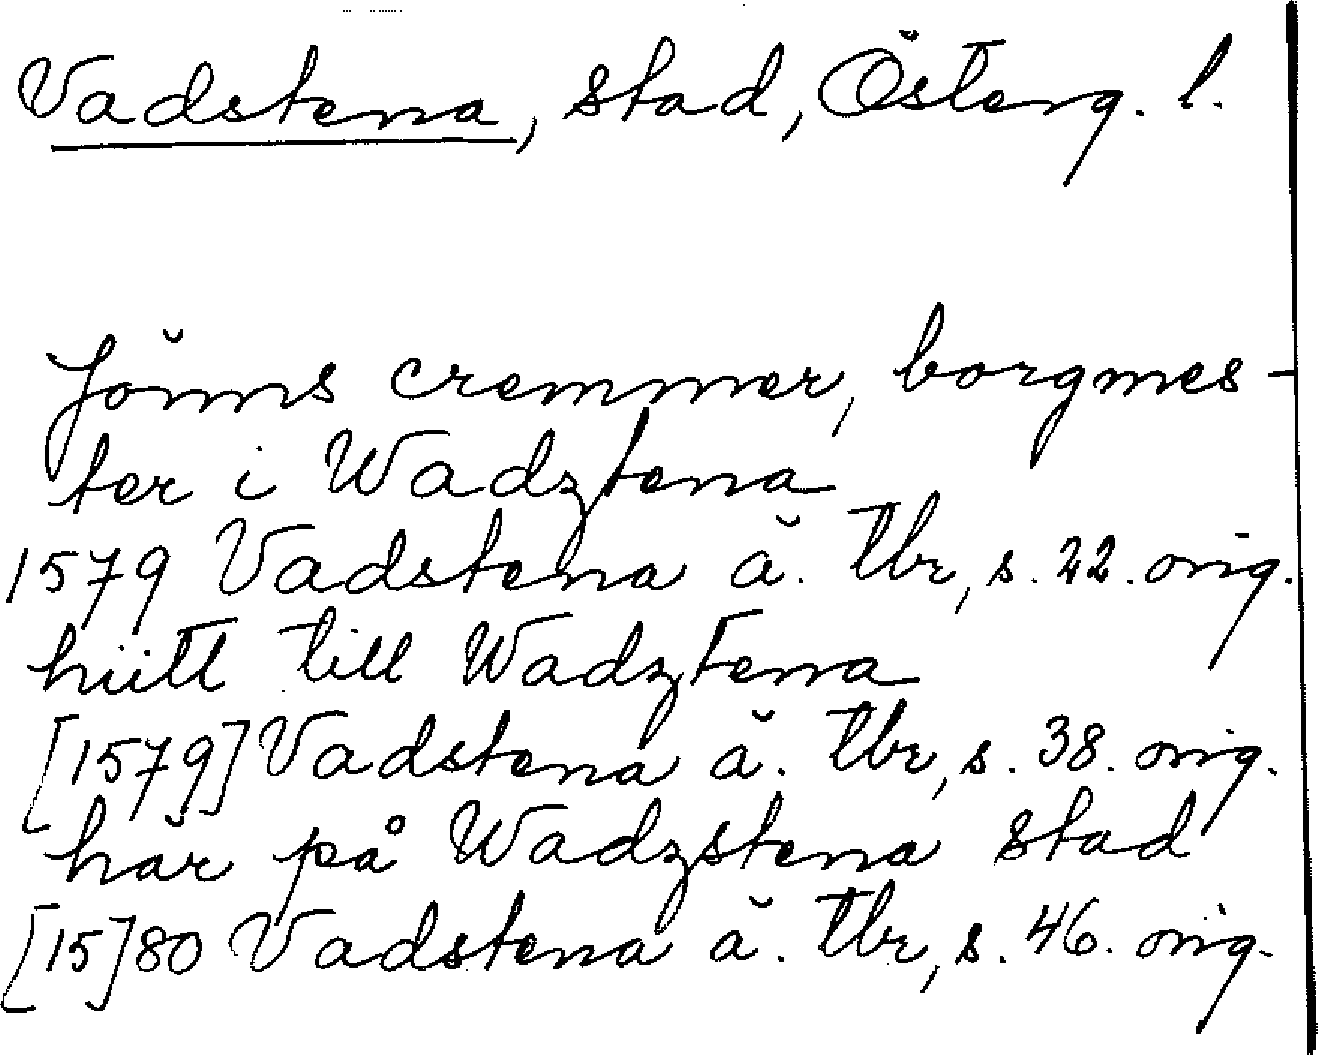 Vadstena, stad, Österg. l.
Jönns cremmer, borgmes-
ter i Wadztena
1579 Vadstena ä. tbr, s. 22. orig.
hiitt till Wadztena
[1579] Vadstena ä. tbr, s. 38. orig.
har på Wadzstena stad
[15]80 Vadstena ä. tbr, s. 46. orig.